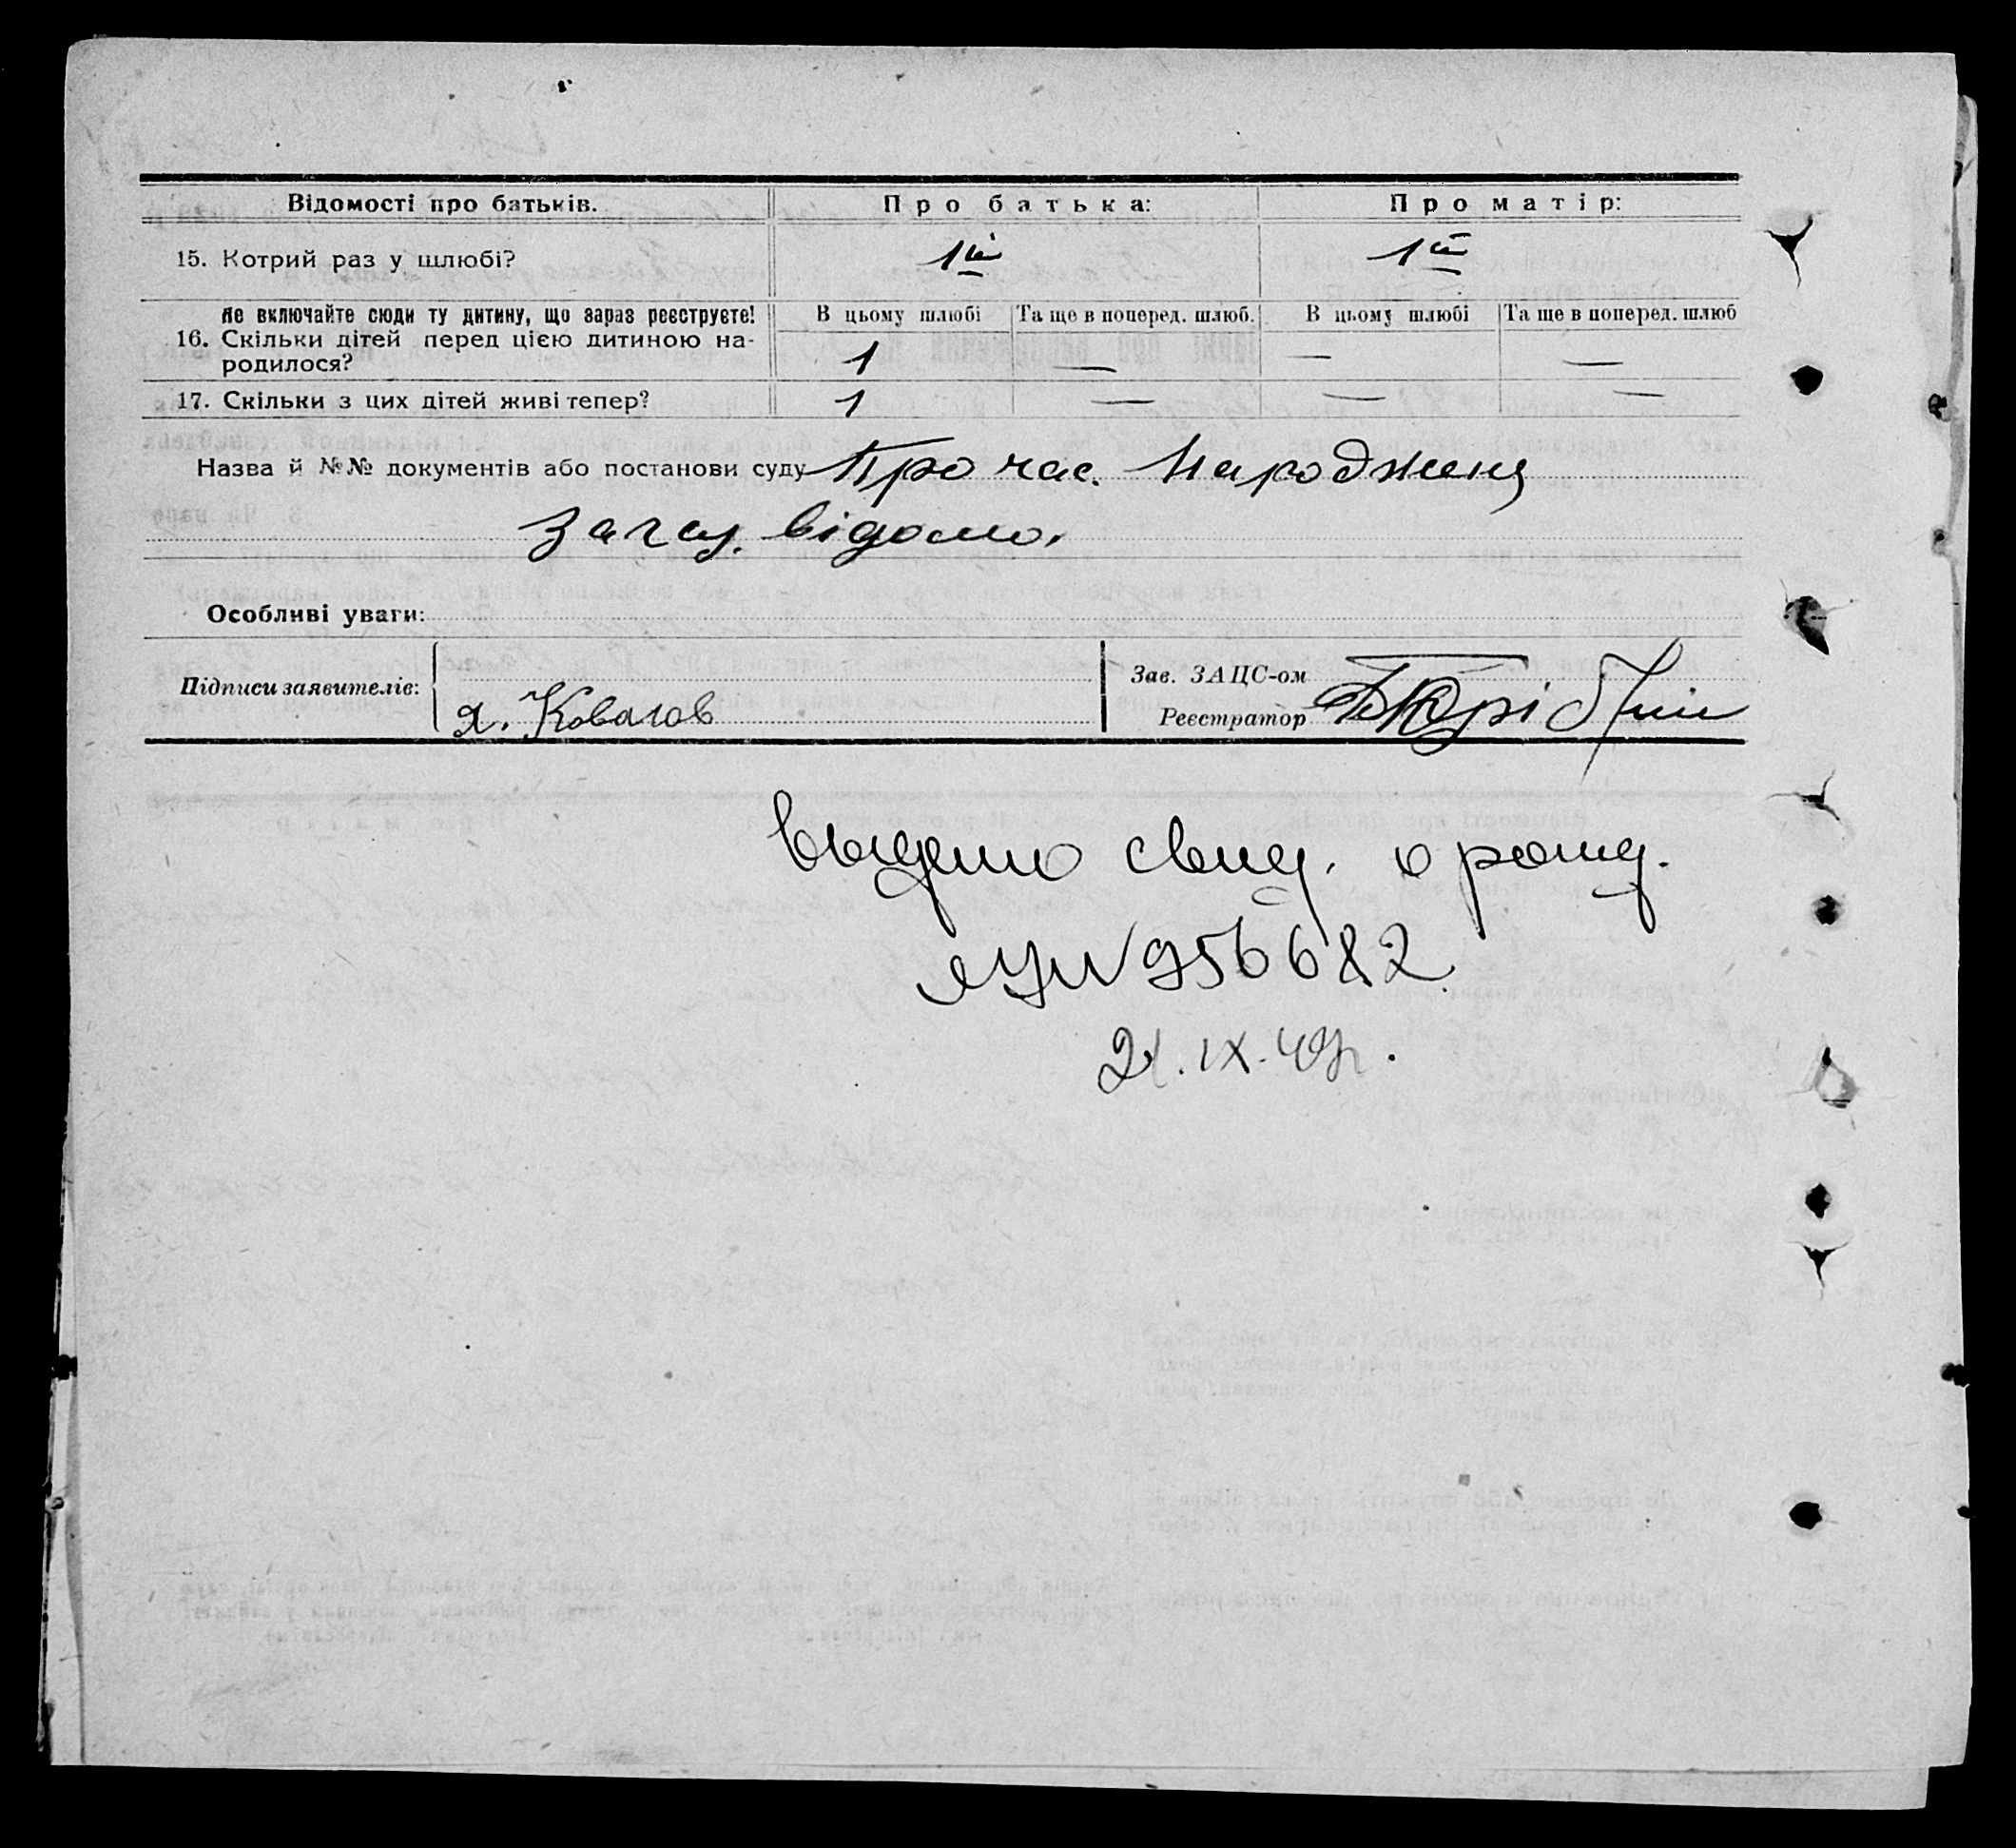 Відомості про батьків. Про батька: Про матір:
15. Котрий раз у шлюбі? 1й 1й
Не включайте сюди ту дитину, що зараз реєструєте! В цьому шлюбі Та ще в поперед. шлюб. В цьому шлюбі Та ще в поперед. шлюб
16. Скільки дітей перед цією дитиною на-
родилося? 1 — — —
17. Скільки з цих дітей живі тепер? 1 — — —
Назва й №№ документів або постанови суду Про час. Народженя
відомо.
Особливі уваги:
Підписи заявителів: Я. Ковалов
Зав. ЗАЦС-ом
Реєстратор
выдано свид. о рожд.
№ 956682
21.IX.49г.